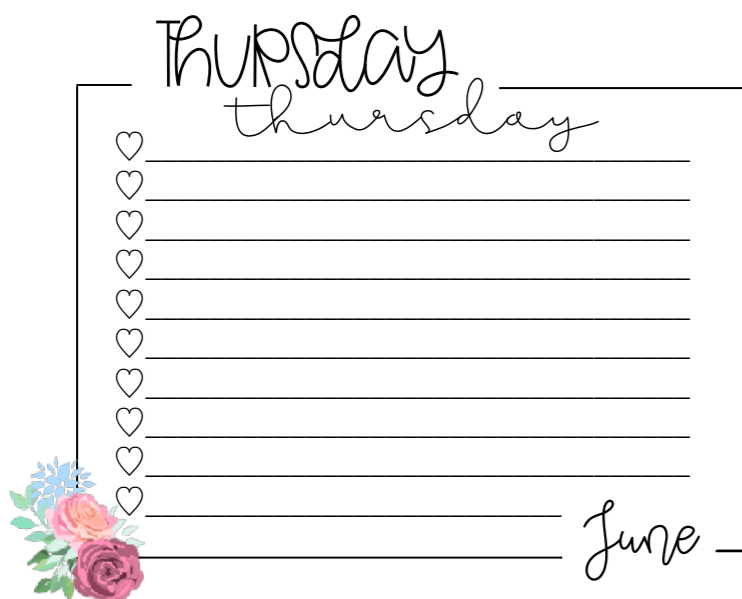 THURSDAY
thursday
June